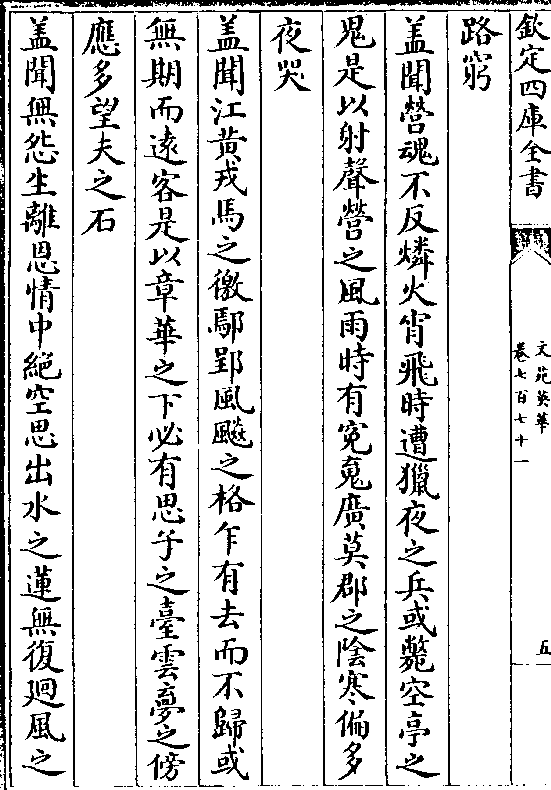 欽定四庫全書
文苑英華
卷七百七十一
五
路窮
盖聞營魂不反燐火宵飛時遭獵夜之兵或斃空亭之
鬼是以射聲營之風雨時有寃䰟廣莫郡之陰寒偏多
夜哭
盖聞江黄戎馬之徼鄢郢風飈之格乍有去而不歸或
無期而逺客是以章華之下必有思子之臺雲夢之傍
應多望夫之石
盖聞無怨生離恩情中絶空思出水之蓮無復廻風之